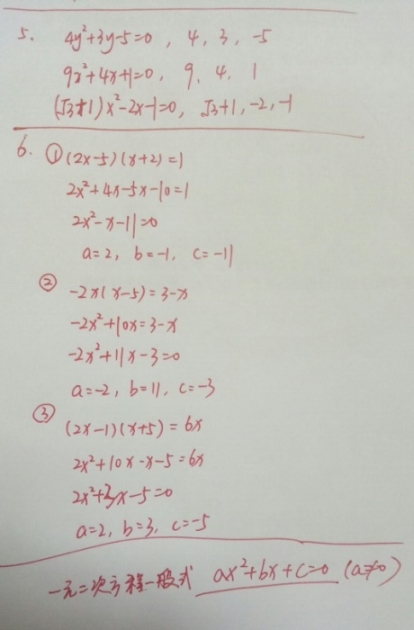 5. 4y²+3y-5=0, 4, 3, -5
9x²+4x+1=0, 9, 4, 1
(√3+1)x²-2x-1=0, √3+1, -2, -1
6. ①(2x-5)(x+2)=1
2x²+4x-5x-10=1
2x²-x-11=0
a=2, b=-1, c=-11
② -2x(x-5)=3-x
-2x²+10x=3-x
-2x²+11x-3=0
a=-2, b=11, c=-3
③ (2x-1)(x+5)=6x
2x²+10x-x-5=6x
2x²+3x-5=0
a=2, b=3, c=-5
一元二次方程一般式 ax²+bx+c=0 (a≠0)